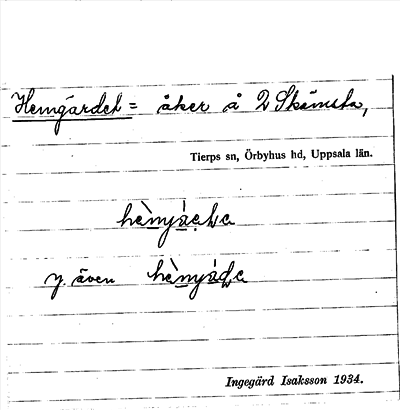 Hemgärdet = åker å 2 Skämsta,
Tierps sn, Örbyhus hd, Uppsala län.
y. även
Ingegärd Isaksson 1934.